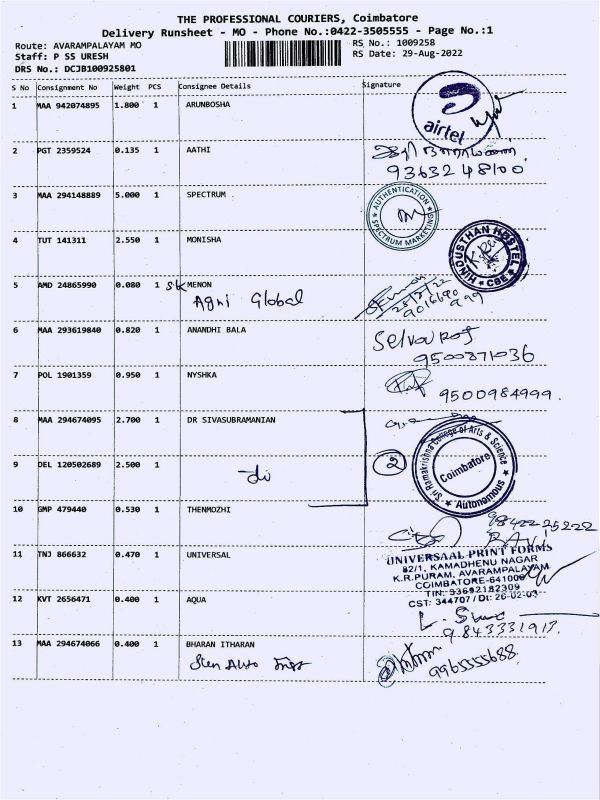 THE PROFESSIONAL COURIERS, Coimbatore
Delivery Runsheet - MO - Phone No.:0422-3505555 - Page No.:1
Route: AVARAMPALAYAM MO
RS No.: 1009258
Staff: P SS URESH
RS Date: 29-Aug-2022
DRS No.: DCJB100925801
S No Consignment No Weight PCS Consignee Details Signature
1 MAA 942074895 1.800 1 ARUNBOSHA
airtel
2 PGT 2359524 0.135 1 AATHI
9363248100.
3 MAA 294148889 5.000 1 SPECTRUM
AUTHENTICATION SPECTRUM MARKETING
4 TUT 141311 2.550 1 MONISHA
HINDUSTHAN HOSTEL CBE
5 AMD 24865990 0.080 1 SK MENON
Agni Global
6 MAA 293619840 0.820 1 ANANDHI BALA
Selvaraj
9500871036
7 POL 1901359 0.950 1 NYSHKA
9500984999.
8 MAA 294674095 2.700 1 DR SIVASUBRAMANIAN
Sri Ramakrishna College of Arts & Science
Coimbatore
Autonomous
9 DEL 120502689 2.500 1
2
10 GMP 479440 0.530 1 THENMOZHI
9842225222
RAVI
11 TNJ 866632 0.470 1 UNIVERSAL
UNIVERSAAL PRINT FORMS
62/1, KAMADHENU NAGAR
K.R.PURAM, AVARAMPALAYAM
COIMBATORE-641006
TIN: 33692182309
CST: 344707 / Dt: 26-02-03
12 KVT 2656471 0.400 1 AQUA
9843331917.
13 MAA 294674066 0.400 1 BHARAN ITHARAN
9965555688